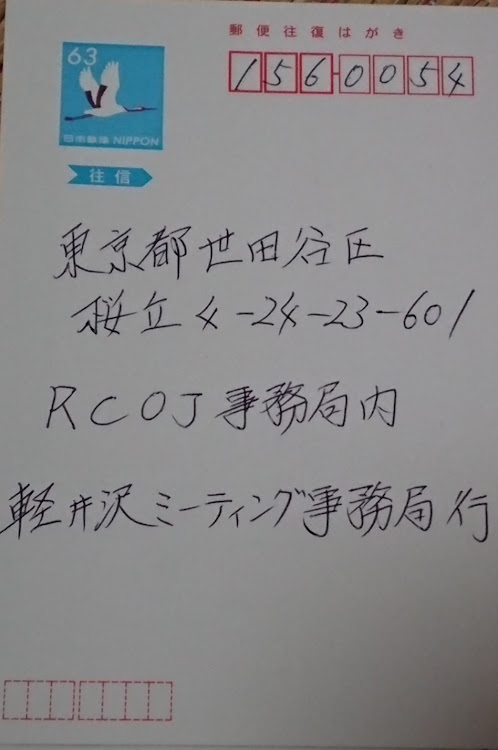 郵便往復はがき
63
156-0054
日本郵便 NIPPON
往信
東京都世田谷区
桜丘4-24-23-601
RCOJ事務局内
軽井沢ミーティング事務局行